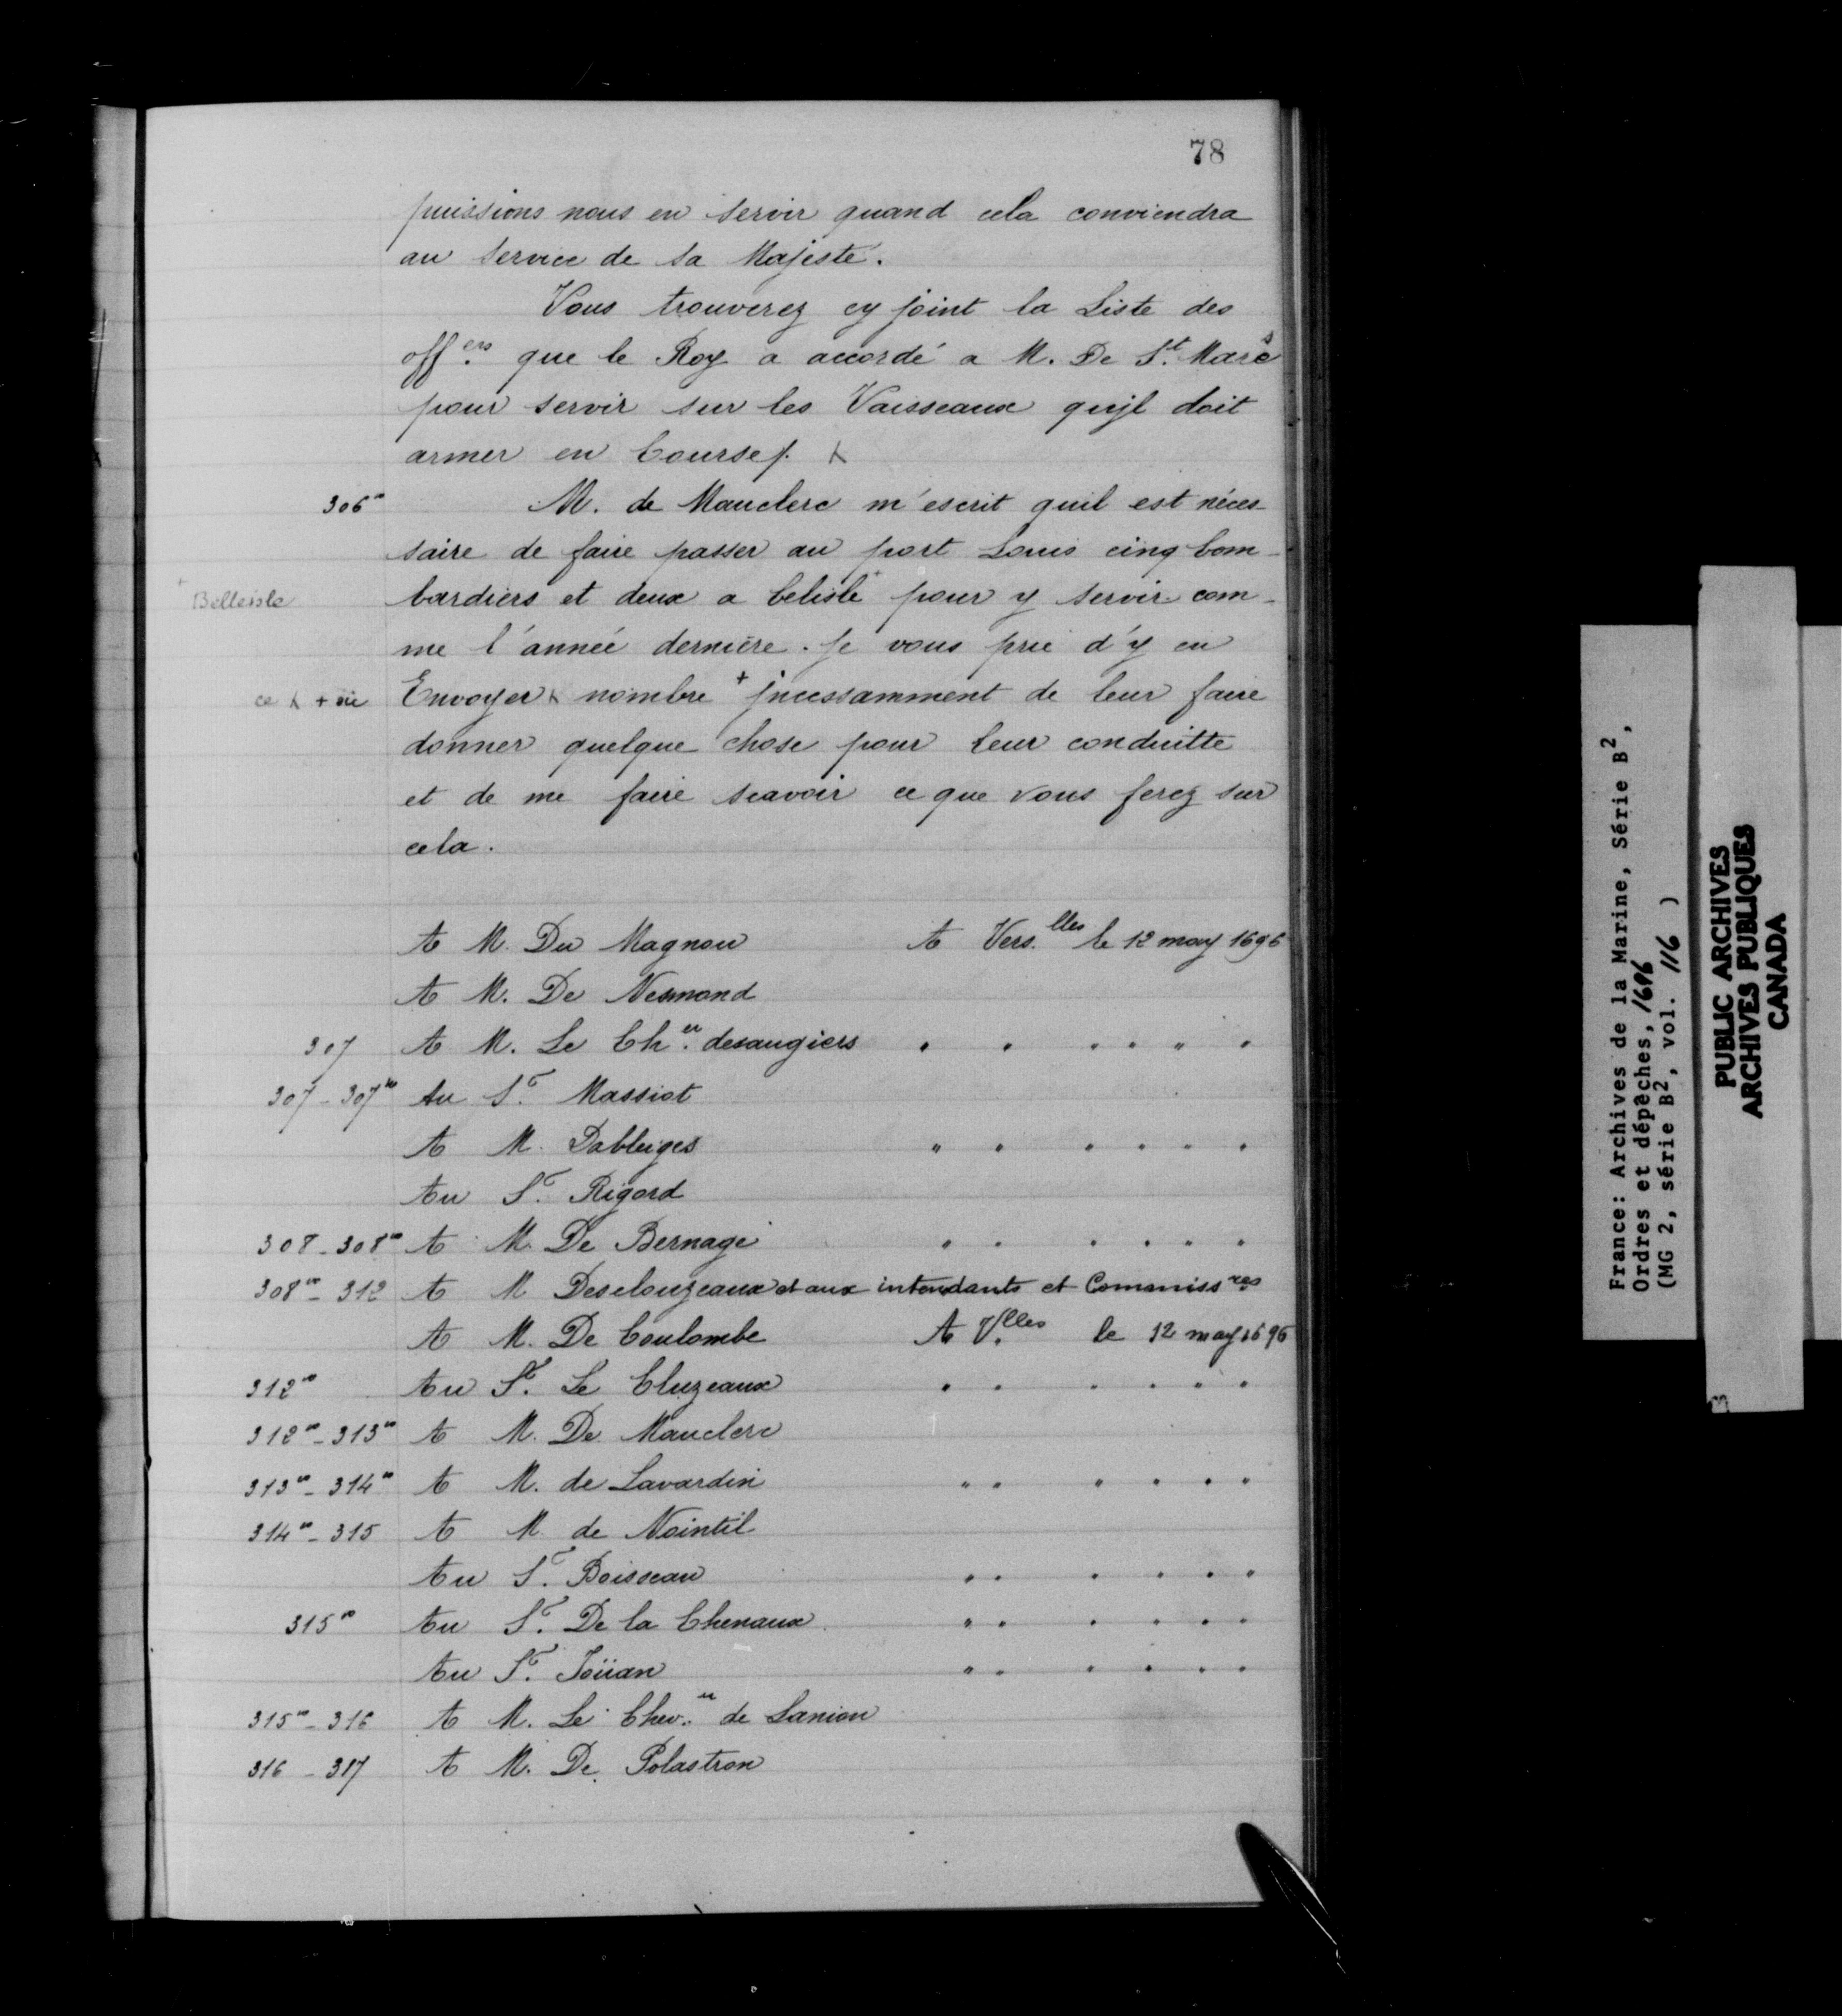 78
puissions nous en servir quand cela conviendra
au service de Sa Majesté.
Vous trouverez cy joint la Liste des
off.ers que le Roy a accordé a M. De St. Marcs
pour servir sur les Vaisseaux qujl doit
armer en Course
306vo M. de Mauclerc m'escrit quil est néces-
saire de faire passer au port Louis cinq bom-
+ Belleisle bardiers et deux a belisle+ pour y servir com-
me l'année dernière. Je vous prie d'y en
Envoyer nombre + jncessamment de leur faire
donner quelque chose pour leur conduitte
et de me faire scavoir ce que vous ferez sur
cela.
A M. Du Magnou A Vers.lles le 12 may 1696
A M. De Nesmond
307 A M. Le Ch.er desaugiers " " " " " "
307-307vo Au Sr. Massiot
A M. Dableiges " " " " " "
Au Sr. Rigord
308-308vo A M. De Bernage " " " " " "
308vo-312 A M Desclouzeaux et aux intendants et Commissres
A M. De Coulombe A V.lles le 12 may 1696
312vo Au Sr. Le Cluzeaux " " " " " "
312vo-313vo A M. De Mauclerc
313vo-314vo A M. de Lavardin " " " " " "
314vo-315 A M de Nointil
Au Sr. Boisseau " " " " " "
315vo Au Sr. De la Chenaux " " " " " "
Au Sr. Joüan " " " " " "
315vo-316 A M. Le Chev.er de Lanion
316-317 A M. De Polastron
France: Archives de la Marine, Série B2,
Ordres et dépêches, 1696
(MG 2, série B2, vol. 116 )
PUBLIC ARCHIVES
ARCHIVES PUBLIQUES
CANADA